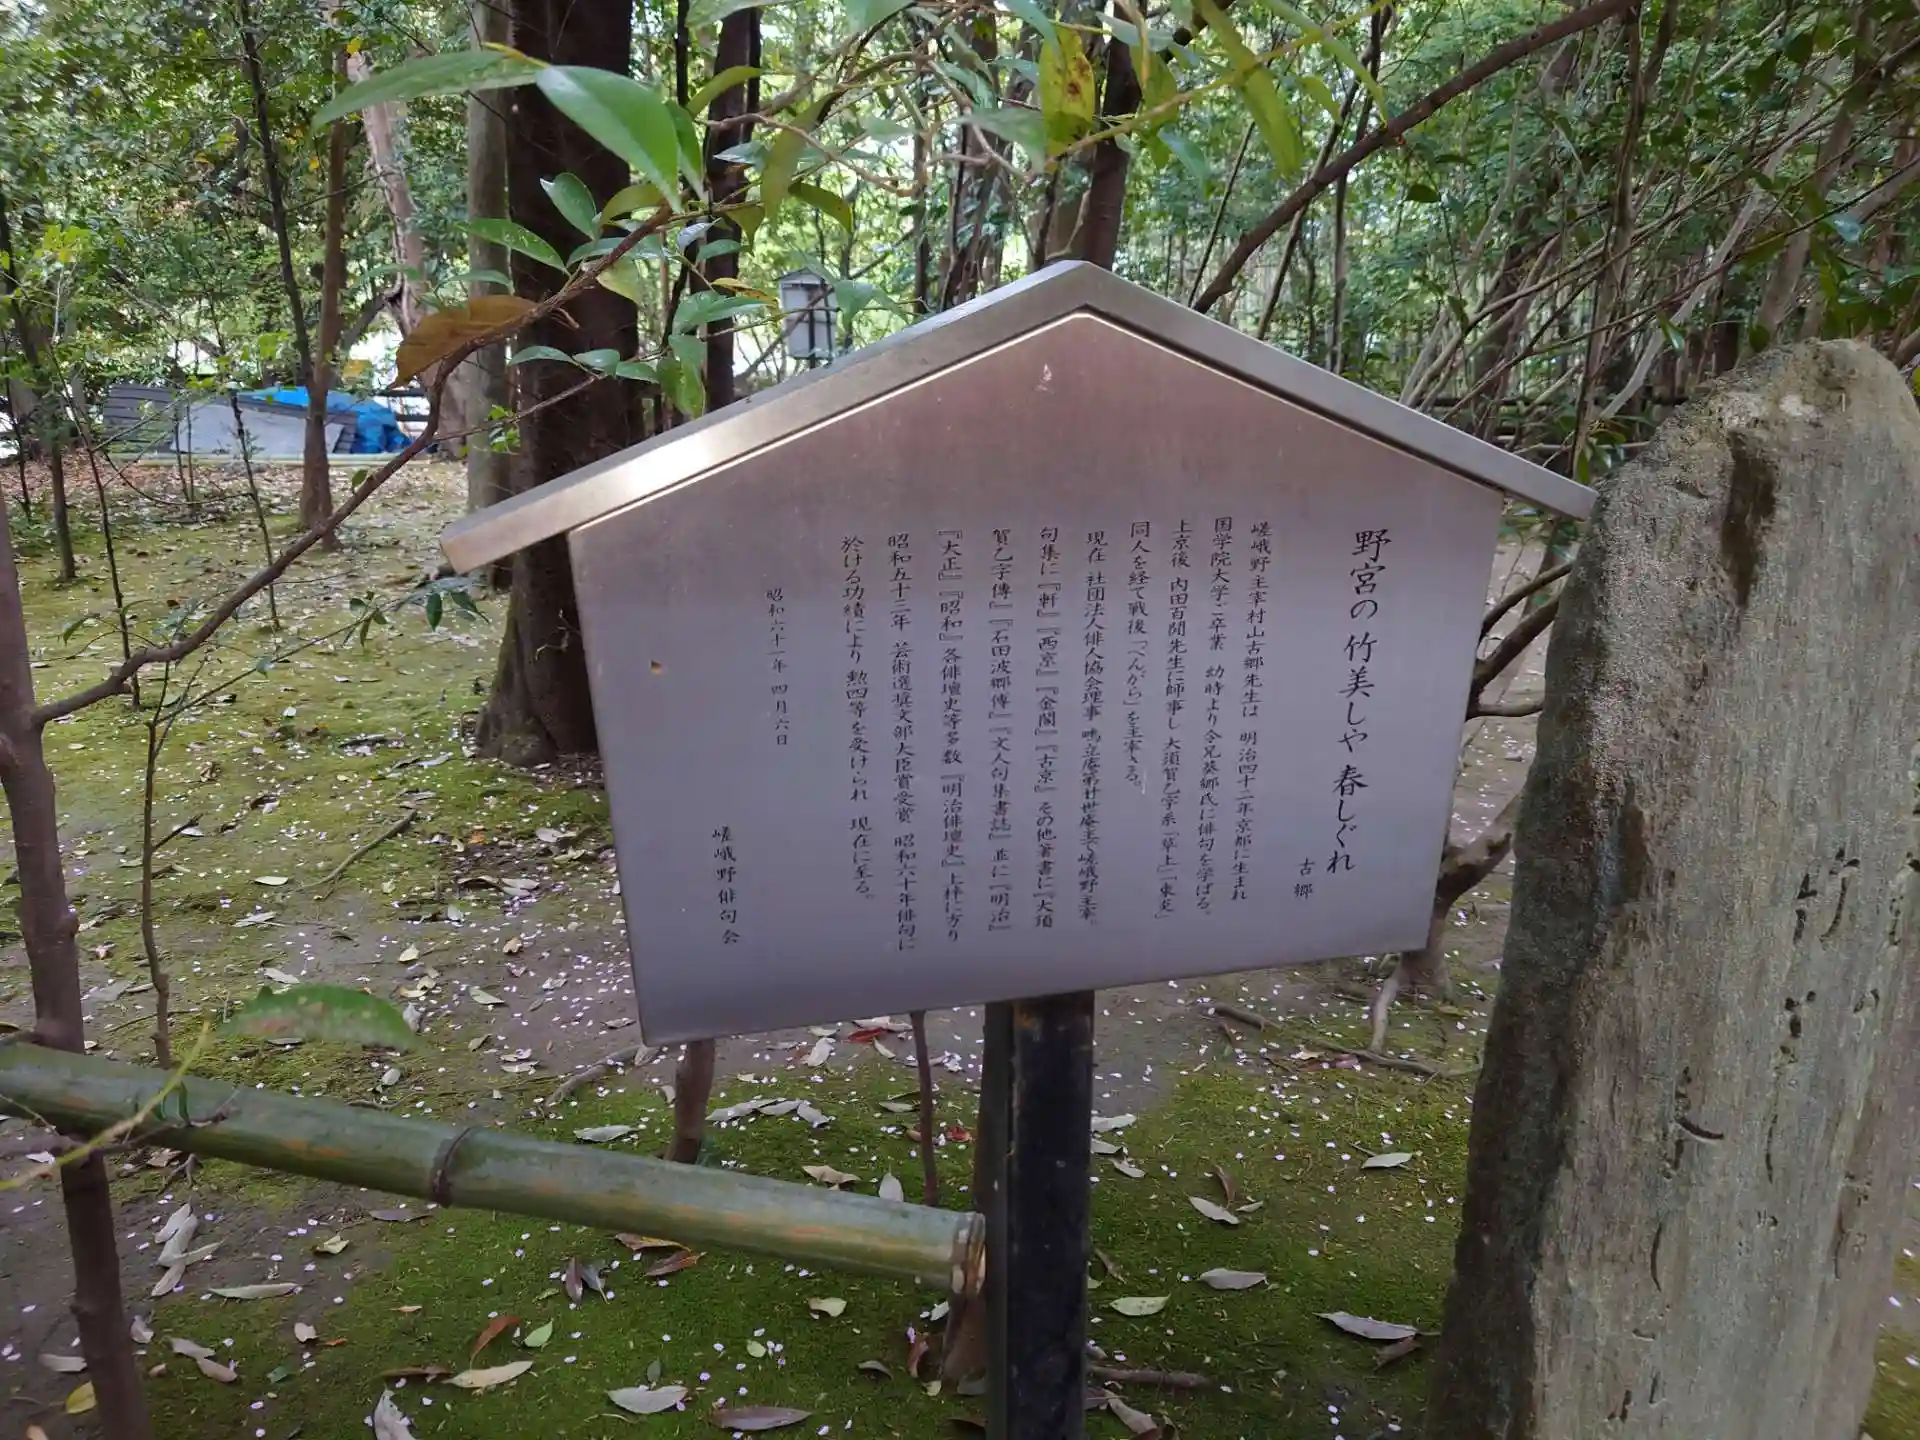 野宮の 竹美しや 春しぐれ
古郷
嵯峨野主宰村山古郷先生は 明治四十二年京都に生まれ
国学院大学ご卒業 幼時より令兄葵郷氏に俳句を学ばる。
上京後 内田百閒先生に師事し大須賀乙字系「草上」「東炎」
同人を経て戦後「べんがら」を主宰さる。
現在 社団法人俳人協会理事 鴫立庵第廿世庵主で嵯峨野主宰。
句集に『軒』『西京』『金閣』『古京』その他著書に『大須
賀乙字傳』『石田波郷傳』『文人句集書誌』並に『明治』
『大正』『昭和』各俳壇史等多数 『明治俳壇史』上梓に方り
昭和五十三年 芸術選奨文部大臣賞受賞 昭和六十年俳句に
於ける功績により 勲四等を受けられ 現在に至る。
昭和六十一年 四月六日
嵯峨野俳句会
竹